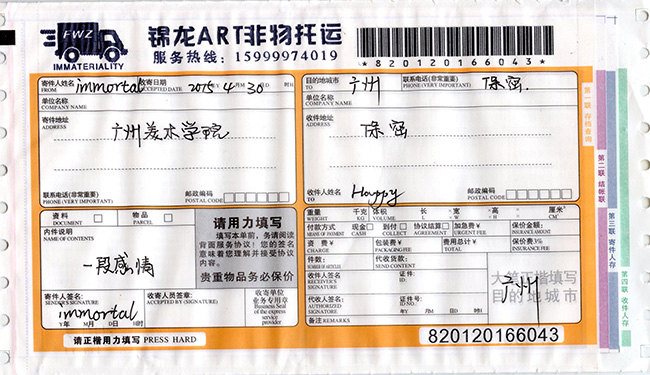 FWZ
IMMATERIALITY
锦龙ART非物托运
服务热线：15999974019
*820120166043*
寄件人姓名 FROM immortal 收寄日期 ACCEPTED DATE 2015 年 4 月 30 日 时
单位名称
COMPANY NAME
寄件地址
ADDRESS
广州美术学院
联系电话(非常重要)
PHONE(VERY IMPORTANT)
邮政编码
POSTAL CODE
目的地城市 TO 广州 联系电话(非常重要) PHONE(VERY IMPORTANT) 保密.
单位名称
COMPANY NAME
收件地址
ADDRESS
保密
收件人姓名 TO Happy
邮政编码
POSTAL CODE
资料 DOCUMENT
物品 PARCEL
内件说明
NAME OF CONTENTS
一段感情
请用力填写
填写本单前，务请阅读
背面服务协议！您的签名
意味着您理解并接受协议
内容。
贵重物品务必保价
寄件人签名：
SENDER'S SIGNATURE
immortal
Y年 M月 D日 H时
收寄人员签章：
ACCEPTED BY (SIGNATURE)
收寄单位
业务专用章
Business Seal
of the express
service
provider
请正楷用力填写 PRESS HARD
重量 WEIGHT 千克 KG 体积 VOLUME 长 L 宽 W 高 H 厘米³ CM³
付款方式 MEANS OF PAYMENT 现金 CASH 到付 COLLECT 协议结算 AGREEMENT 加急费¥ URGENT FEE 保价金额:
资费¥ CHARGE 包装费¥ PACKAGE FEE 费用总计¥ TOTAL 保价费3% INSURANCE FEE
件数: 代收货款:
收件人签名
RECEIVER'S
SIGNATURE
证件:
ID:
代收人签名
AUTHORIZED
SIGNATURE
证件号:
Y年 M月 D日 H时
备注 REMARKS
大笔正楷填写
目的地城市
广州
820120166043
第一联 存档查阅
第二联 结帐联
第三联 寄件人存
第四联 收件人存